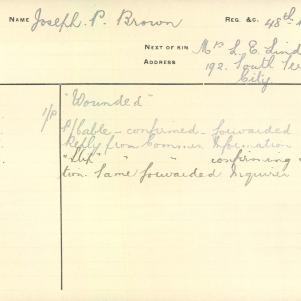 NAME Joseph. P. Brown REG. &C. 48th
NEXT OF KIN Mrs L. E. Lind
ADDRESS 192. South
City
"Wounded"
P/bable - confirmed - forwarded
Reply from Common Information
" " confirming
tion. Same forwarded Inquirer